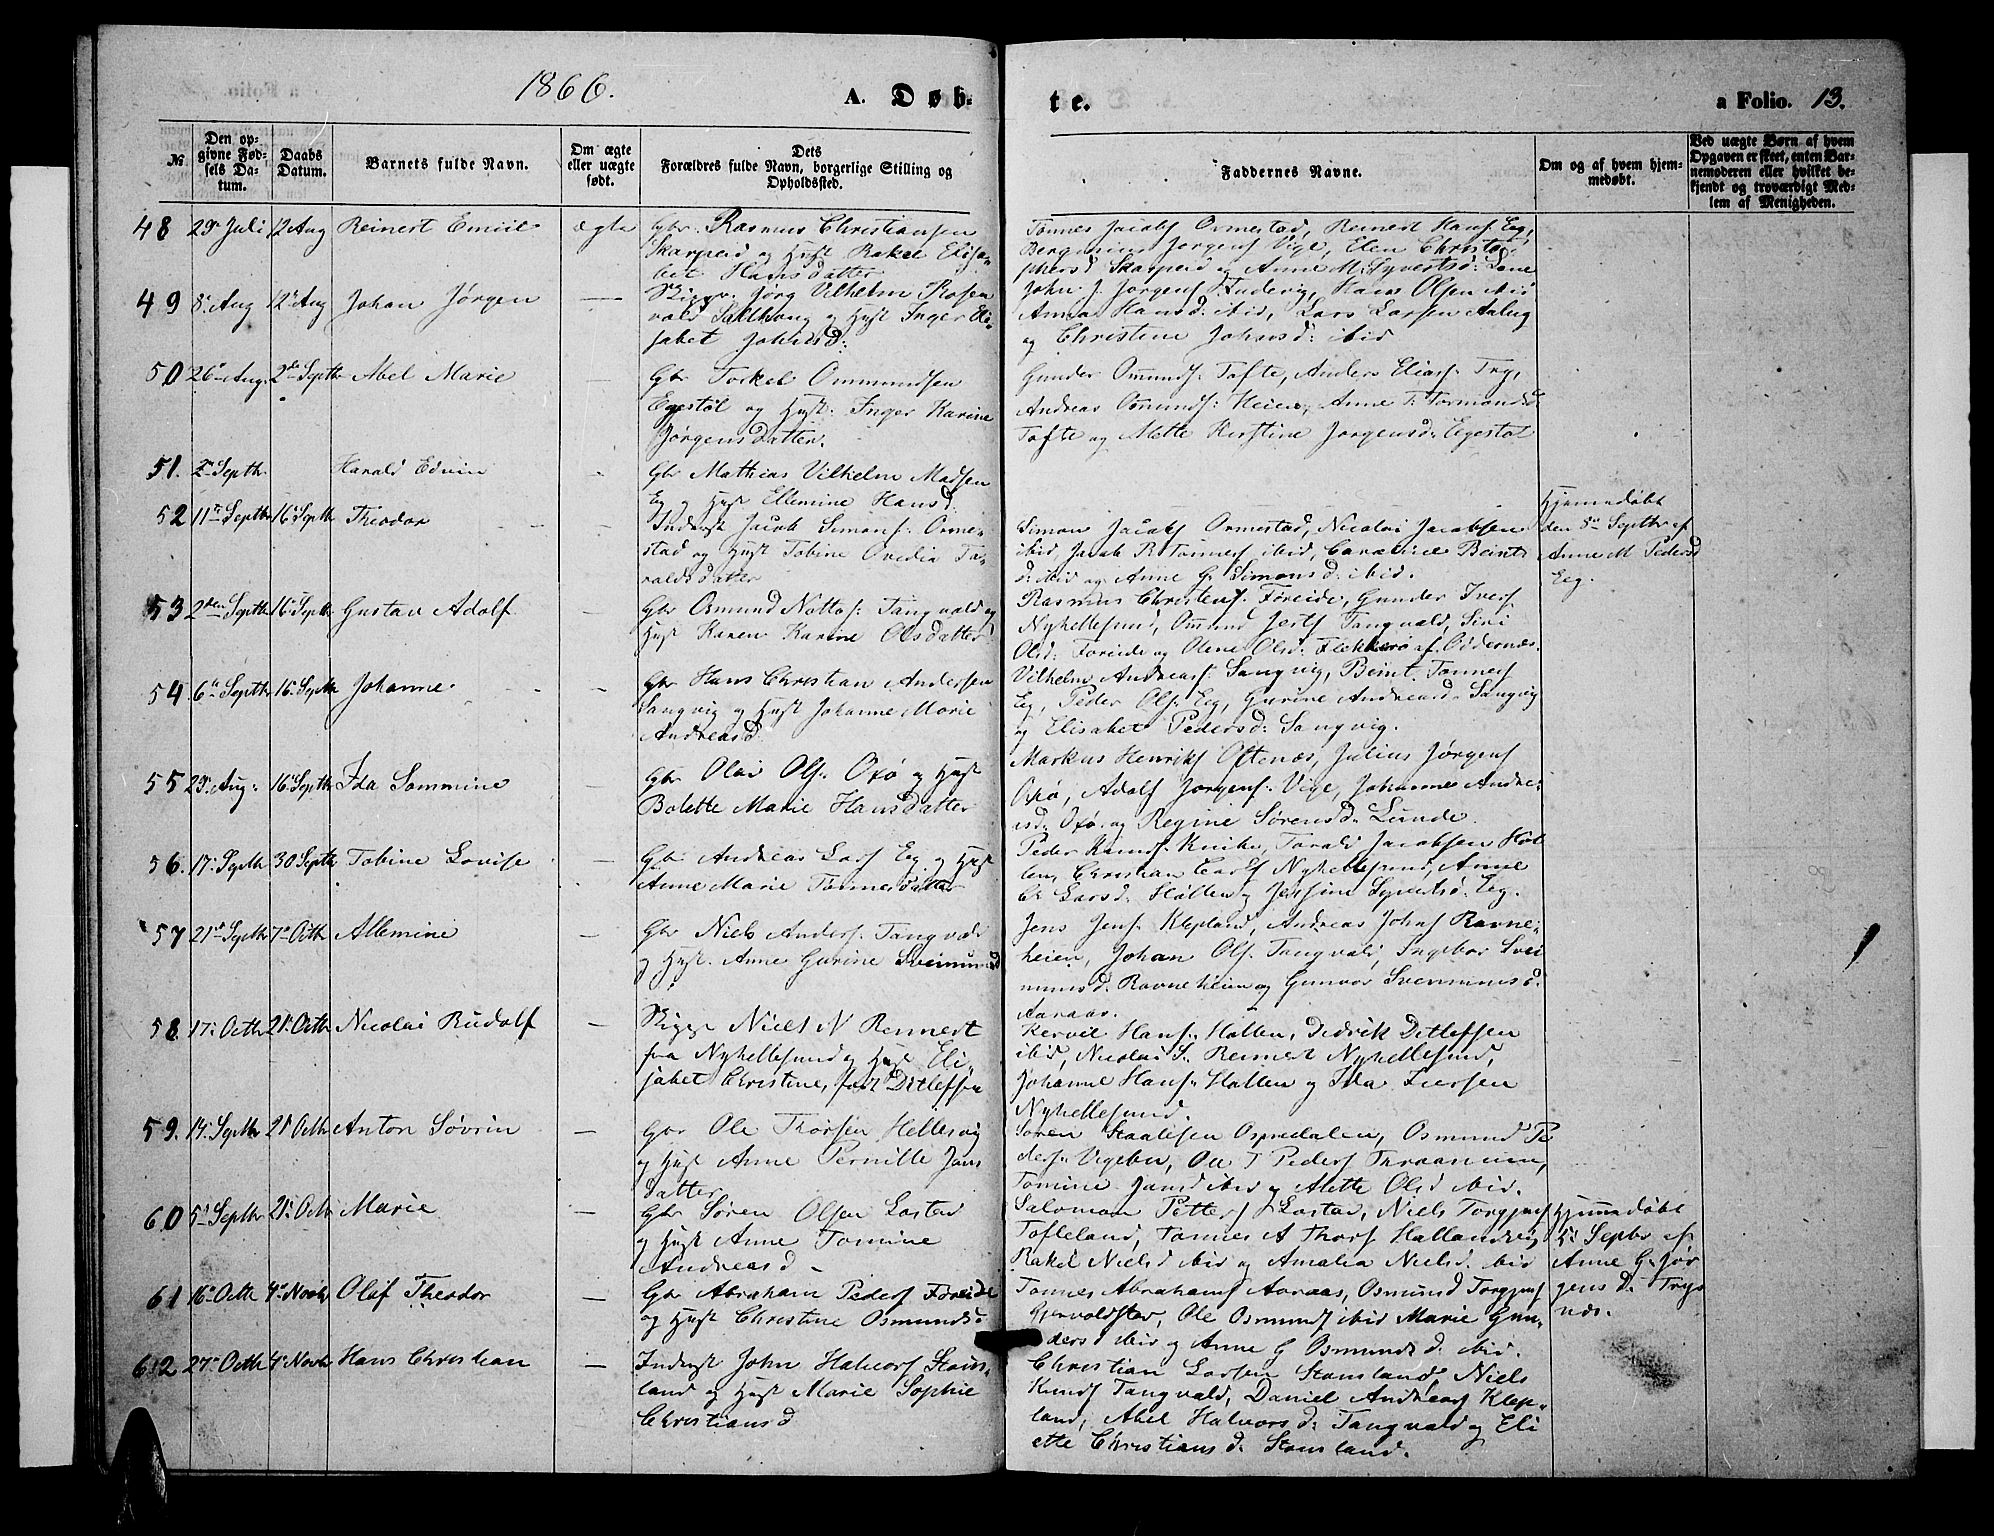 1866.
A. Døb-
te.
a Folio. 13.
№
Den op-
givne Fød-
sels Da-
tum.
Daabs
Datum.
Barnets fulde Navn.
Om ægte
eller uægte
født.
Dets
Forældres fulde Navn, borgerlige Stilling og
Opholdssted.
Faddernes Navne.
Om og af hvem hjem-
medøbt.
Ved uægte Børn af hvem
Opgaven er skeet, enten Bar-
nemoderen eller hvilket be-
kjendt og troværdigt Med-
lem af Menigheden.
48 29 Juli 12 Aug Reinert Emiil ægte Gbr. Rasmus Christiansen
Skarpeid og Hust Rakel Elisa-
bet Hansdatter
Tønnes Jacobs Ormestad, Reinert Hans Eg,
Jørgens Vige, Elen Christo-
phersd Skarpeid og Anne M. Syvertsd: Lane
49 8 Aug 12 Aug Johan Jørgen — Jørg Vilhelm Rosen
vald og Hust Inger Eli-
sabet Johnsd:
John J. Jørgens Hans Olsen ibid
Anna Hansd: ibid, Lars Larsen Aalug
og Christine Johnsd: ibid
50 26 Aug. 2de Septbr Abel Marie — Gbr Torkel Ommundsen
Egestøl og Hust: Inger Karine
Jørgensdatter.
Gunder Omunds: Tofte, Anders Elias: Try,
Andreas Omunds: Heien, Anne T. Tormondsd
Tofte og Mette Kirstine Jørgensd: Egestøl
51. 2 Septbr. Harald Edvin - Gbr Mathias Vilhelm Madsen
Eg og Hust Ellemine Hansd:
52 11 Septbr 16 Septbr Theodor - Inderst Jacob Simons: Orme-
stad og Hust Tobine Ovedia Ta-
raldsdatter
Simon Jacobs Ormestad, Nicolai Jacobsen
ibid, Jacob B. Tønnes ibid, Caroline Beints
d: ibid og Anne G. Simonsd: ibid.
Hjemmedøbt
den 5 Septbr af
Anne M Pedersd
Eeg.
53 2den Septbr 16 Septbr Gustav Adolf - Gbr Osmund Nottos: Tangvald og
Hust Karen Karine Olsdatter
Rasmus Christens: Foreide, Gunder Ivers
Nyhellesund, Omund Jerts Tangvald, Siri
Olsd: Foreide og Olene Olsd: Flekkerø af Oddernæs.
54. 6 Septbr 16 Septbr Johanne - Gbr Hans Christian Andersen
Sangvig og Hust Johanne Marie
Andreasd
Vilhelm Andreas: Sangvig, Beint Tønnes
Eg, Peder Ols: Eeg, Gurine Andreasd: Sangvig
og Elisabet Pedersd: Sangvig.
55 29 Aug: 16 Septbr Ida Sommine - Gbr Olai Ols: Oxø og Hust
Bolette Marie Hansdatter
Markus Henriks Oftenæs, Julius Jørgens
Oxø, Adolf Jørgens: Vige, Johannes Andre-
asd: Oxø og Regine Sørensd: Lunde.
56. 17 Septbr 30 Septbr Tobine Lovise — Gbr Andreas Lars Eeg og Hust
Anne Marie Tønnesdatter
Peder Knuds: Knibe, Tarald Jacobsen Hol
len, Christian Carls Nyhellesund, Anne
C. Larsd: Hallen og Jensine Syvertsd: Eeg.
57 21 Septbr 7 Octbr Allemine — Gbr Niels Anders: Tangvald
og Hust. Anne Gurine Sveinund
Jens Jens: Klepland, Andreas Johns Ravne-
heien, Johan Ols. Tangvald, Ingebor Svei
nunsd. Ravneheien og Gunvor Sveinunsd.
Aaraas.
58. 17 Octbr 21 Octbr Nicolai Rudolf — Niels N Rennert
fra Nyhellesund og Hust Eli-
sabet Christine, født Ditlefsen
Hans: Hallen, Didrik Ditlefsen
ibid, Nicolai S. Reinert Nyhellesund,
Johanne Hans: Hallen og Ida Iversen
Nyhellesund.
59. 14 Septbr 21 Octbr Anton Søvrin — Gbr Ole Thorsen Hellevig
og Hust Anne Pernille Jans
datter
Søren Staalesen Ospedalen, Osmund Pe
ders: Vigebu, Ole T Peders
Tomine Jansd ibid og Mette Olsd ibid.
60 5 Septbr 21 Octbr Marie — Gbr Søren Olsen Lastad
og Hust Anne Tomine
Andreasd -
Salomon Petters Lastad, Niels Torgjus
Tofteland, Tønnes A Thors Hallandvig
Rakel Nielsd ibid og Amalia Nielsd. ibid
Hjemmedøbt
5 Septbr af
Anne G. Jør
gens D. Trys
næs.
61 16 Octbr 4 Novbr Olaf Theodor — Gbr Abraham Peders Foreide
og Hust Christine Osmunds-
Tønnes Abrahams Aaraas, Osmund Torgjus
Ole Osmunds ibid Marie Gun-
dersd ibid og Anne G Osmundsd. ibid.
62 27 Octbr 4 Novbr Hans Christian — Inderst John Halvors Stous-
land og Hust Marie Sophie
Christiansd
Christian Larsen Stousland, Niels
Knuds Tangvald, Daniel Andreas Klep-
land, Abel Halvorsd: Tangvald og Eli
ette Christiansd. Stousland.